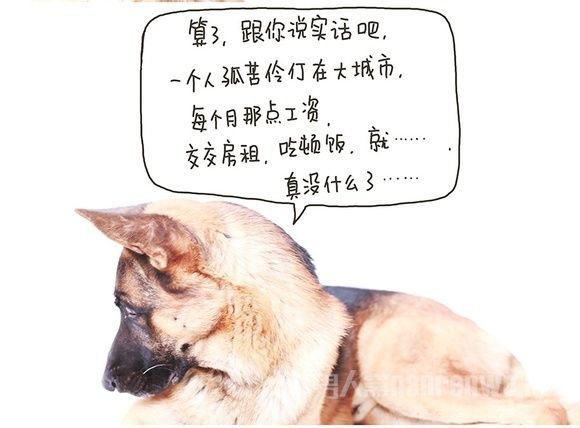 算了，跟你说实话吧，
一个人孤苦伶仃在大城市，
每个月那点工资，
交交房租，吃顿饭，就……，
真没什么了……